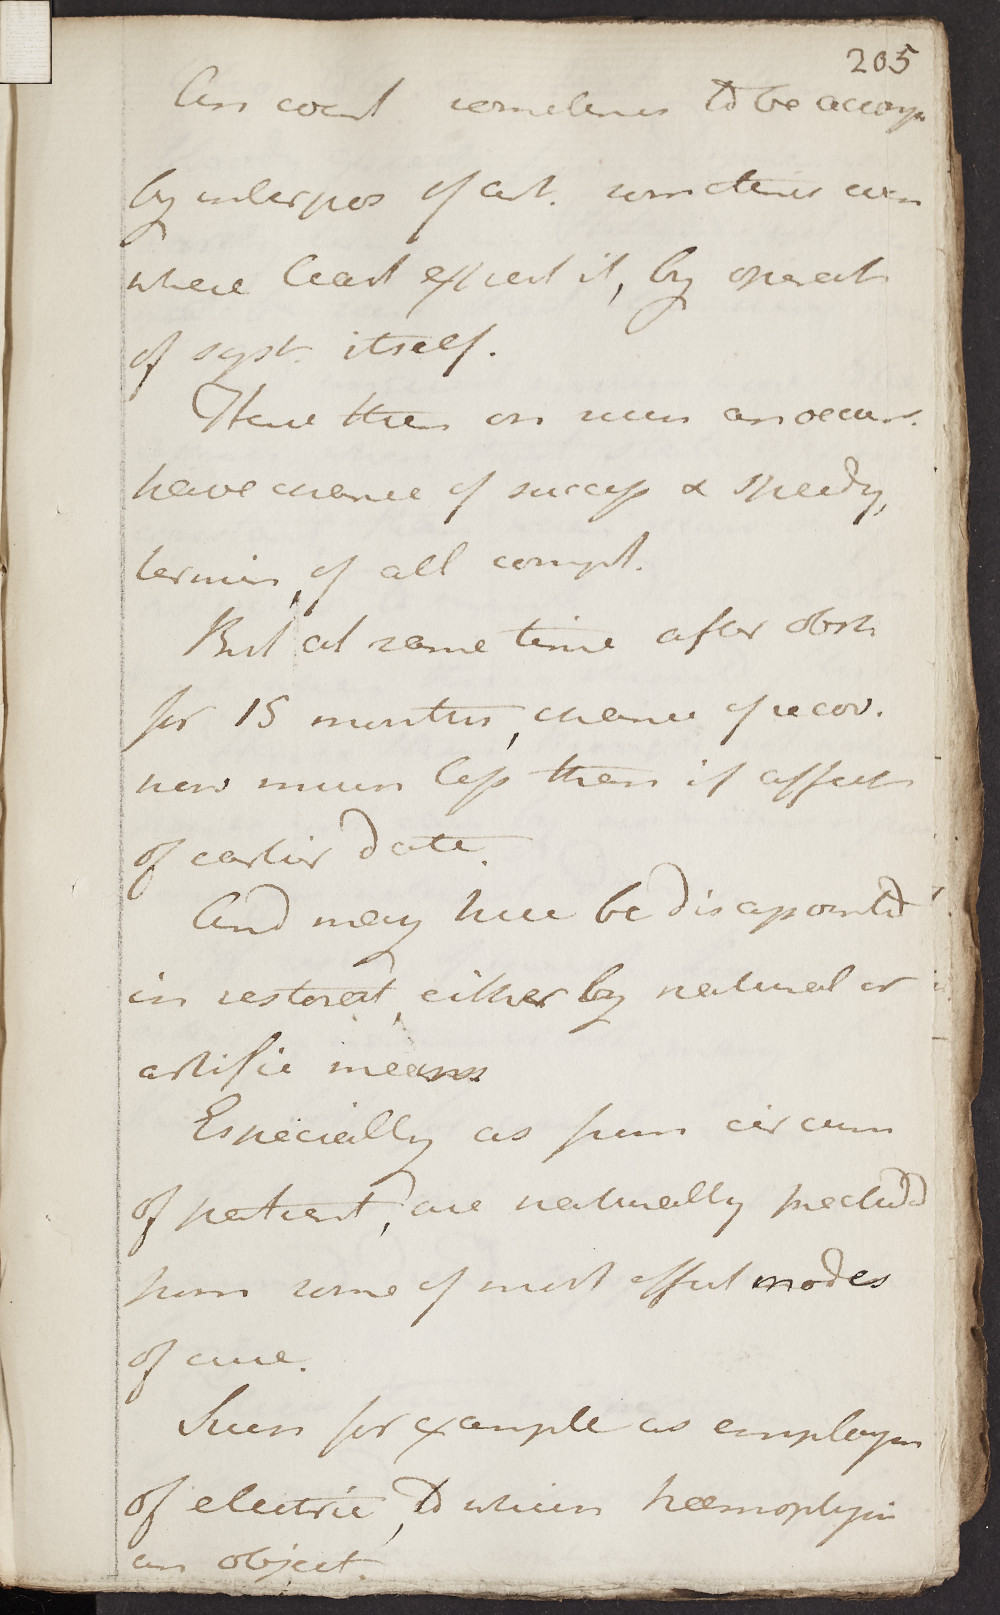 205
An sometimes to be accomp
by interpos of art. sometimes even
where least expect it, by operat
of syst. itself.
Have then on such an occurr.
have chance of success & speedy,
termin, of all compt.
But at same time after obst
for 15 months, chance of recov.
now much less than if affect
of earlier date.
And may here be disapointd
in restorat, either by natural or
artific means
Especially as from circum
of patient, are naturally precludd
from some of most effect modes
of cure.
Such for example as employm
of electric, to which hæmoptysis
an object.